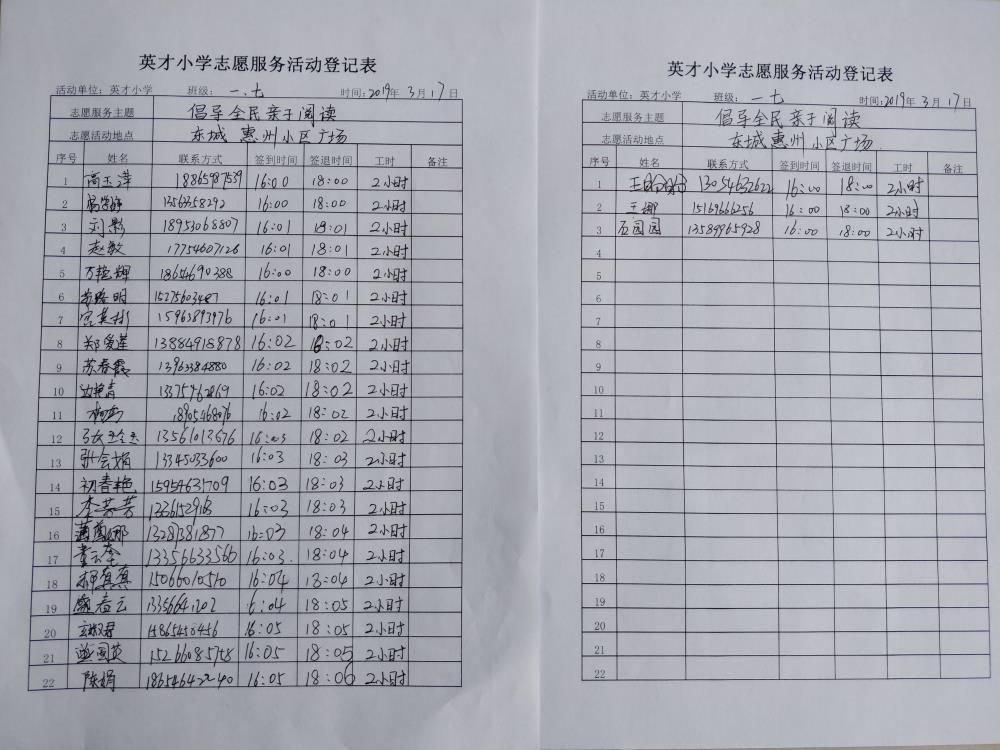 英才小学志愿服务活动登记表
活动单位：英才小学 班级： 一.七 时间：2019年 3月 17日
志愿服务主题 倡导全民亲子阅读
志愿活动地点 东城 惠州小区广场
序号 姓名 联系方式 签到时间 签退时间 工时 备注
1 高玉萍 18865987539 16:00 18:00 2小时
2 16:00 18:00 2小时
3 刘影 18953068807 16:01 18:01 2小时
4 赵敏 17754607126 16:01 18:01 2小时
5 万艳辉 18654690388 16:00 18:00 2小时
6 15275603487 16:01 18:01 2小时
7 15963893976 16:01 18:01 2小时
8 郑爱莲 13884918878 16:02 18:02 2小时
9 苏春霞 13963384880 16:02 18:02 2小时
10 16:02 18:02 2小时
11 18905468076 16:02 18:02 2小时
12 13561013676 16:03 18:02 2小时
13 张会娟 13345033600 16:03 18:03 2小时
14 初春艳 15954631709 16:03 18:03 2小时
15 李芳芳 16:03 18:03 2小时
16 13281381877 16:03 18:04 2小时
17 13356633566 16:03 18:04 2小时
18 15066010510 16:04 18:04 2小时
19 13356641202 6:04 18:05 2小时
20 16:05 18:05 2小时
21 16:05 18:05 2小时
22 陈娟 18654642240 16:05 18:06 2小时
英才小学志愿服务活动登记表
活动单位：英才小学 班级： 一 七 时间：2019年 3月 17日
志愿服务主题 倡导全民亲子阅读
志愿活动地点 东城惠州小区广场
序号 姓名 联系方式 签到时间 签退时间 工时 备注
1 13054632622 16:00 18:00 2小时
2 王娜 15169666256 16:00 18:00 2小时
3 石园园 13589965928 16:00 18:00 2小时
4
5
6
7
8
9
10
11
12
13
14
15
16
17
18
19
20
21
22